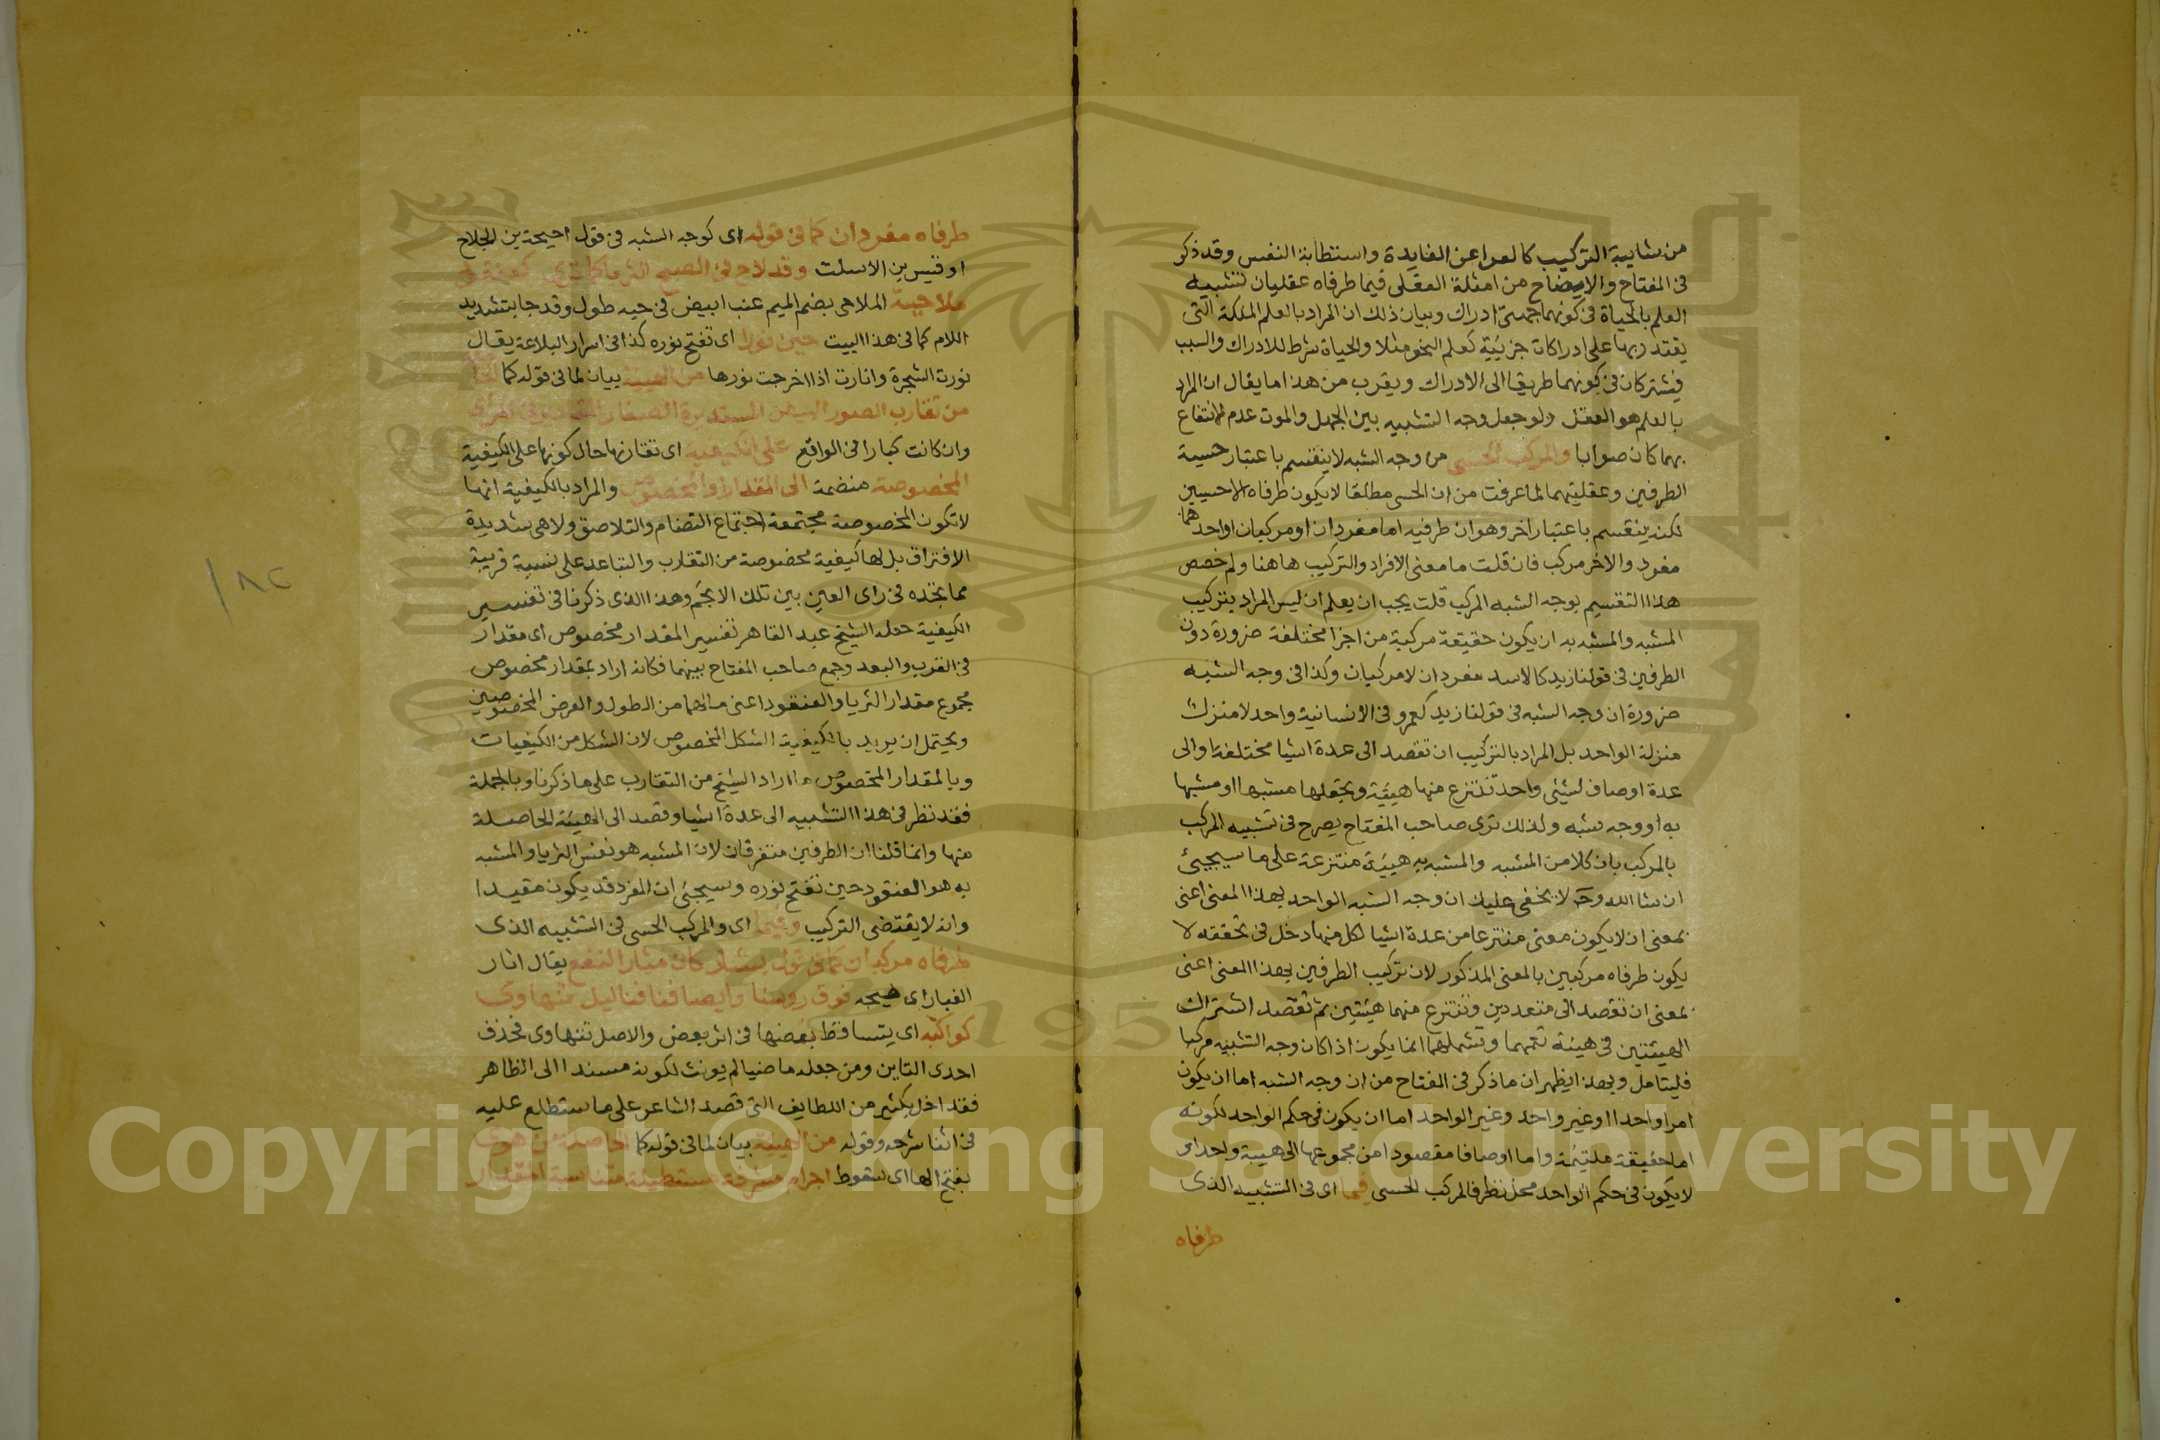 من شايبة التركيب كالعرا عن الفايدة واستطابة النفس وقد ذكر
فى المفتاح والايضاح من امثلة العقلى فيما طرفاه عقليان تشبيه
العلم بالحياة فى كونهما جهتى ادراك وبيان ذلك ان المراد بالعلم الملكة التى
يقتدر بها على ادراكات جزئية كعلم النحو مثلا والحياة شرط للادراك والسبب
فيشتركان فى كونهما طريقا الى الادراك ويقرب من هذا ما يقال ان المراد
بالعلم هو العقل ولو جعل وجه التشبيه بين الجهل والموت عدم الانتفاع
بهما كان صوابا والمركب الحسى من وجه الشبه لا ينقسم باعتبار حسية
الطرفين وعقليتهما لما عرفت من ان الحسى مطلقا لا يكون طرفاه الاحسيين
لكنه ينقسم باعتبار اخر وهو ان طرفيه اما مفردان او مركبان او احدهما
مفرد والاخر مركب فان قلت ما معنى الافراد والتركيب هاهنا ولم خصص
هذا التقسيم بوجه الشبه المركب قلت يجب ان يعلم ان ليس المراد بتركيب
المشبه والمشبه به ان يكون حقيقة مركبة من اجزا مختلفة ضرورة دون
الطرفين فى قولنا زيد كالاسد مفردان لا مركبان وكذا فى وجه الشبه
ضرورة ان وجه الشبه فى قولنا زيد كعمرو فى الانسانية واحد لا منزل
منزلة الواحد بل المراد بالتركيب ان تقصد الى عدة اشيا مختلفة او الى
عدة اوصاف لشئى واحد تنتزع منها هيئة ويجعلها مشبها او مشبها
به او وجه شبه ولذلك ترى صاحب المفتاح يصرح فى تشبيه المركب
بالمركب بان كلا من المشبه والمشبه به هيئة منتزعة على ما سيجيئ
ان شا الله وح لا يخفى عليك ان وجه الشبه الواحد بهذا المعنى اعنى
بمعنى ان لا يكون معنى منتزعا من عدة اشيا لكل منها دخل فى تحققه لا
يكون طرفاه مركبين بالمعنى المذكور لان تركيب الطرفين بهذا المعنى اعنى
بمعنى ان تقصد الى متعددين وتنتزع منهما هيئتين ثم تقصد اشتراك
الهيئتين فى هيئة تعمهما وتشملهما انما يكون اذا كان وجه التشبيه مركبا
فليتامل وبهذا يظهر ان ما ذكر فى المفتاح من ان وجه الشبه اما ان يكون
امرا واحدا او غير واحد وغير الواحد اما ان يكون فى حكم الواحد لكونه
اما حقيقة ملتئمة واما اوصافا مقصودا من مجموعها الى هيئة واحدة او
لا يكون فى حكم الواحد محل نظر فالمركب الحسى فيما اى فى التشبيه الذى
طرفاه
طرفاه مفردان كما فى قوله اى كوجه الشبه فى قول احيحة بن الجلاح
او قيس بن الاسلت وقد لاح فى الصبح الثريا كما ترى كعنقود
ملاحية الملاحى بضم الميم عنب ابيض فى حبه طول وقد جا بتشديد
اللام كما فى هذا البيت حين نورا اى تفتح نوره كذا فى اسرار البلاغة يقال
نورت الشجرة وانارت اذا اخرجت نورها من الهيئة بيان لما فى قوله كما
من تقارب الصور البيض المستديرة الصغار المقادير فى المرأى
وان كانت كبارا فى الواقع على الكيفية اى تقارنها حال كونها على الكيفية
المخصوصة منضمة الى المقدار المخصوص والمراد بالكيفية انها
لا تكون المخصوصة مجتمعة اجتماع التضام والتلاصق ولا هى شديدة
الافتراق بل لها كيفية مخصوصة من التقارب والتباعد على نسبة قريبة
مما تجده فى راى العين بين تلك الانجم وهذا الذى ذكرنا فى تفسير
الكيفية جعله الشيخ عبد القاهر تفسير المقدار مخصوص اى مقدار
فى القرب والبعد وجمع صاحب المفتاح بينهما فكانه اراد بمقدار مخصوص
مجموع مقدار الثريا والعنقود اعنى مالهما من الطول والعرض المخصوصين
ويحتمل ان يريد بالكيفية الشكل المخصوص لان الشكل من الكيفيات
وبالمقدار المخصوص ما اراد الشيخ من التقارب على ما ذكرنا وبالجملة
فقد نظر فى هذا التشبيه الى عدة اشيا وقصد الى الهيئة الحاصلة
منها وانما قلنا ان الطرفين متفرقان لان المشبه هو نفس الثريا والمشبه
به هو العنقود حين تفتح نوره وسيجئى ان المفرد قد يكون مقيدا
وانه لا يقتضى التركيب وفيما اى والمركب الحسى فى التشبيه الذى
طرفاه مركبان كما فى قول بشار كان مثار النقع يقال اثار
الغبار اى هيجه فوق روسنا واسيافنا ليل تهاوى
كواكبه اى يتساقط بعضها فى اثر بعض والاصل تتهاوى فحذف
احدى التاين ومن جعله ماضيا لم يونث لكونه مسندا الى الظاهر
فقد اخل بكثير من اللطايف التى قصد الشاعر على ما ستطلع عليه
فى اثنا شرحه وقوله من الهيئة بيان لما فى قوله كما الحاصلة من هوى
بفتح الها اى سقوط اجرام مشرقة مستطيلة متناسبة المقدار
١٨٢
Copyright © King Saud University
1957